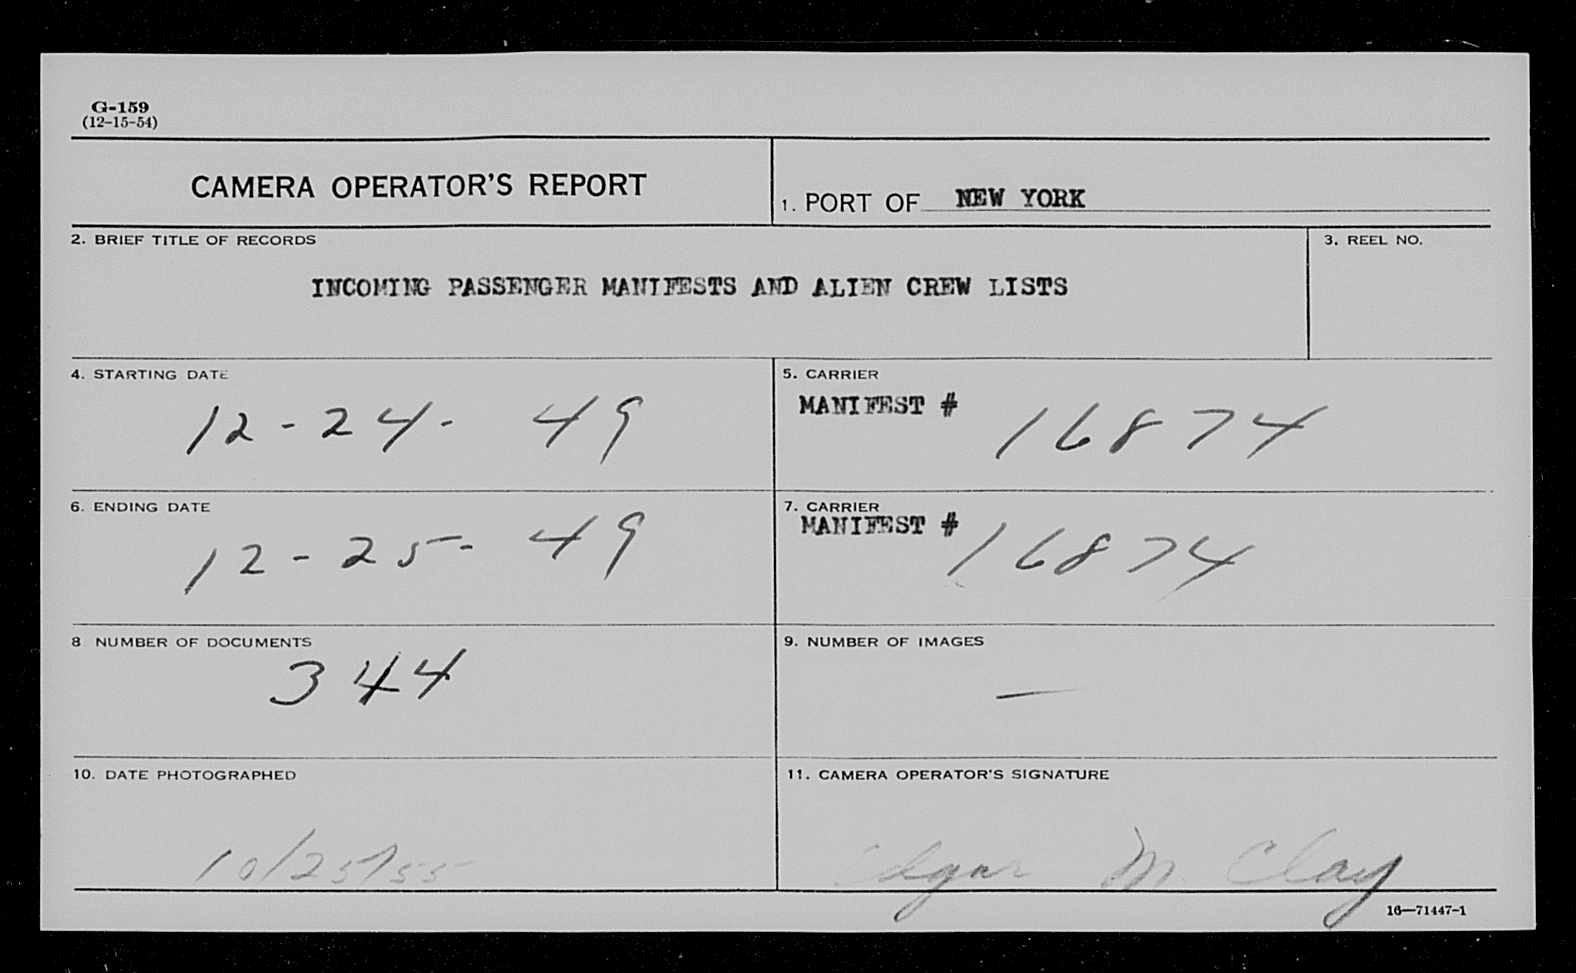 G-159
(12-15-54)
CAMERA OPERATOR'S REPORT
1. PORT OF NEW YORK
2. BRIEF TITLE OF RECORDS
3. REEL NO.
INCOMING PASSENGER MANIFESTS AND ALIEN CREW LISTS
4. STARTING DATE
12-24-49
5. CARRIER
MANIFEST # 16874
6. ENDING DATE
12-25-49
7. CARRIER
MANIFEST # 16874
8 NUMBER OF DOCUMENTS
344
9. NUMBER OF IMAGES
—
10. DATE PHOTOGRAPHED
10/25/55
11. CAMERA OPERATOR'S SIGNATURE
Edgar M. Clay
16—71447-1